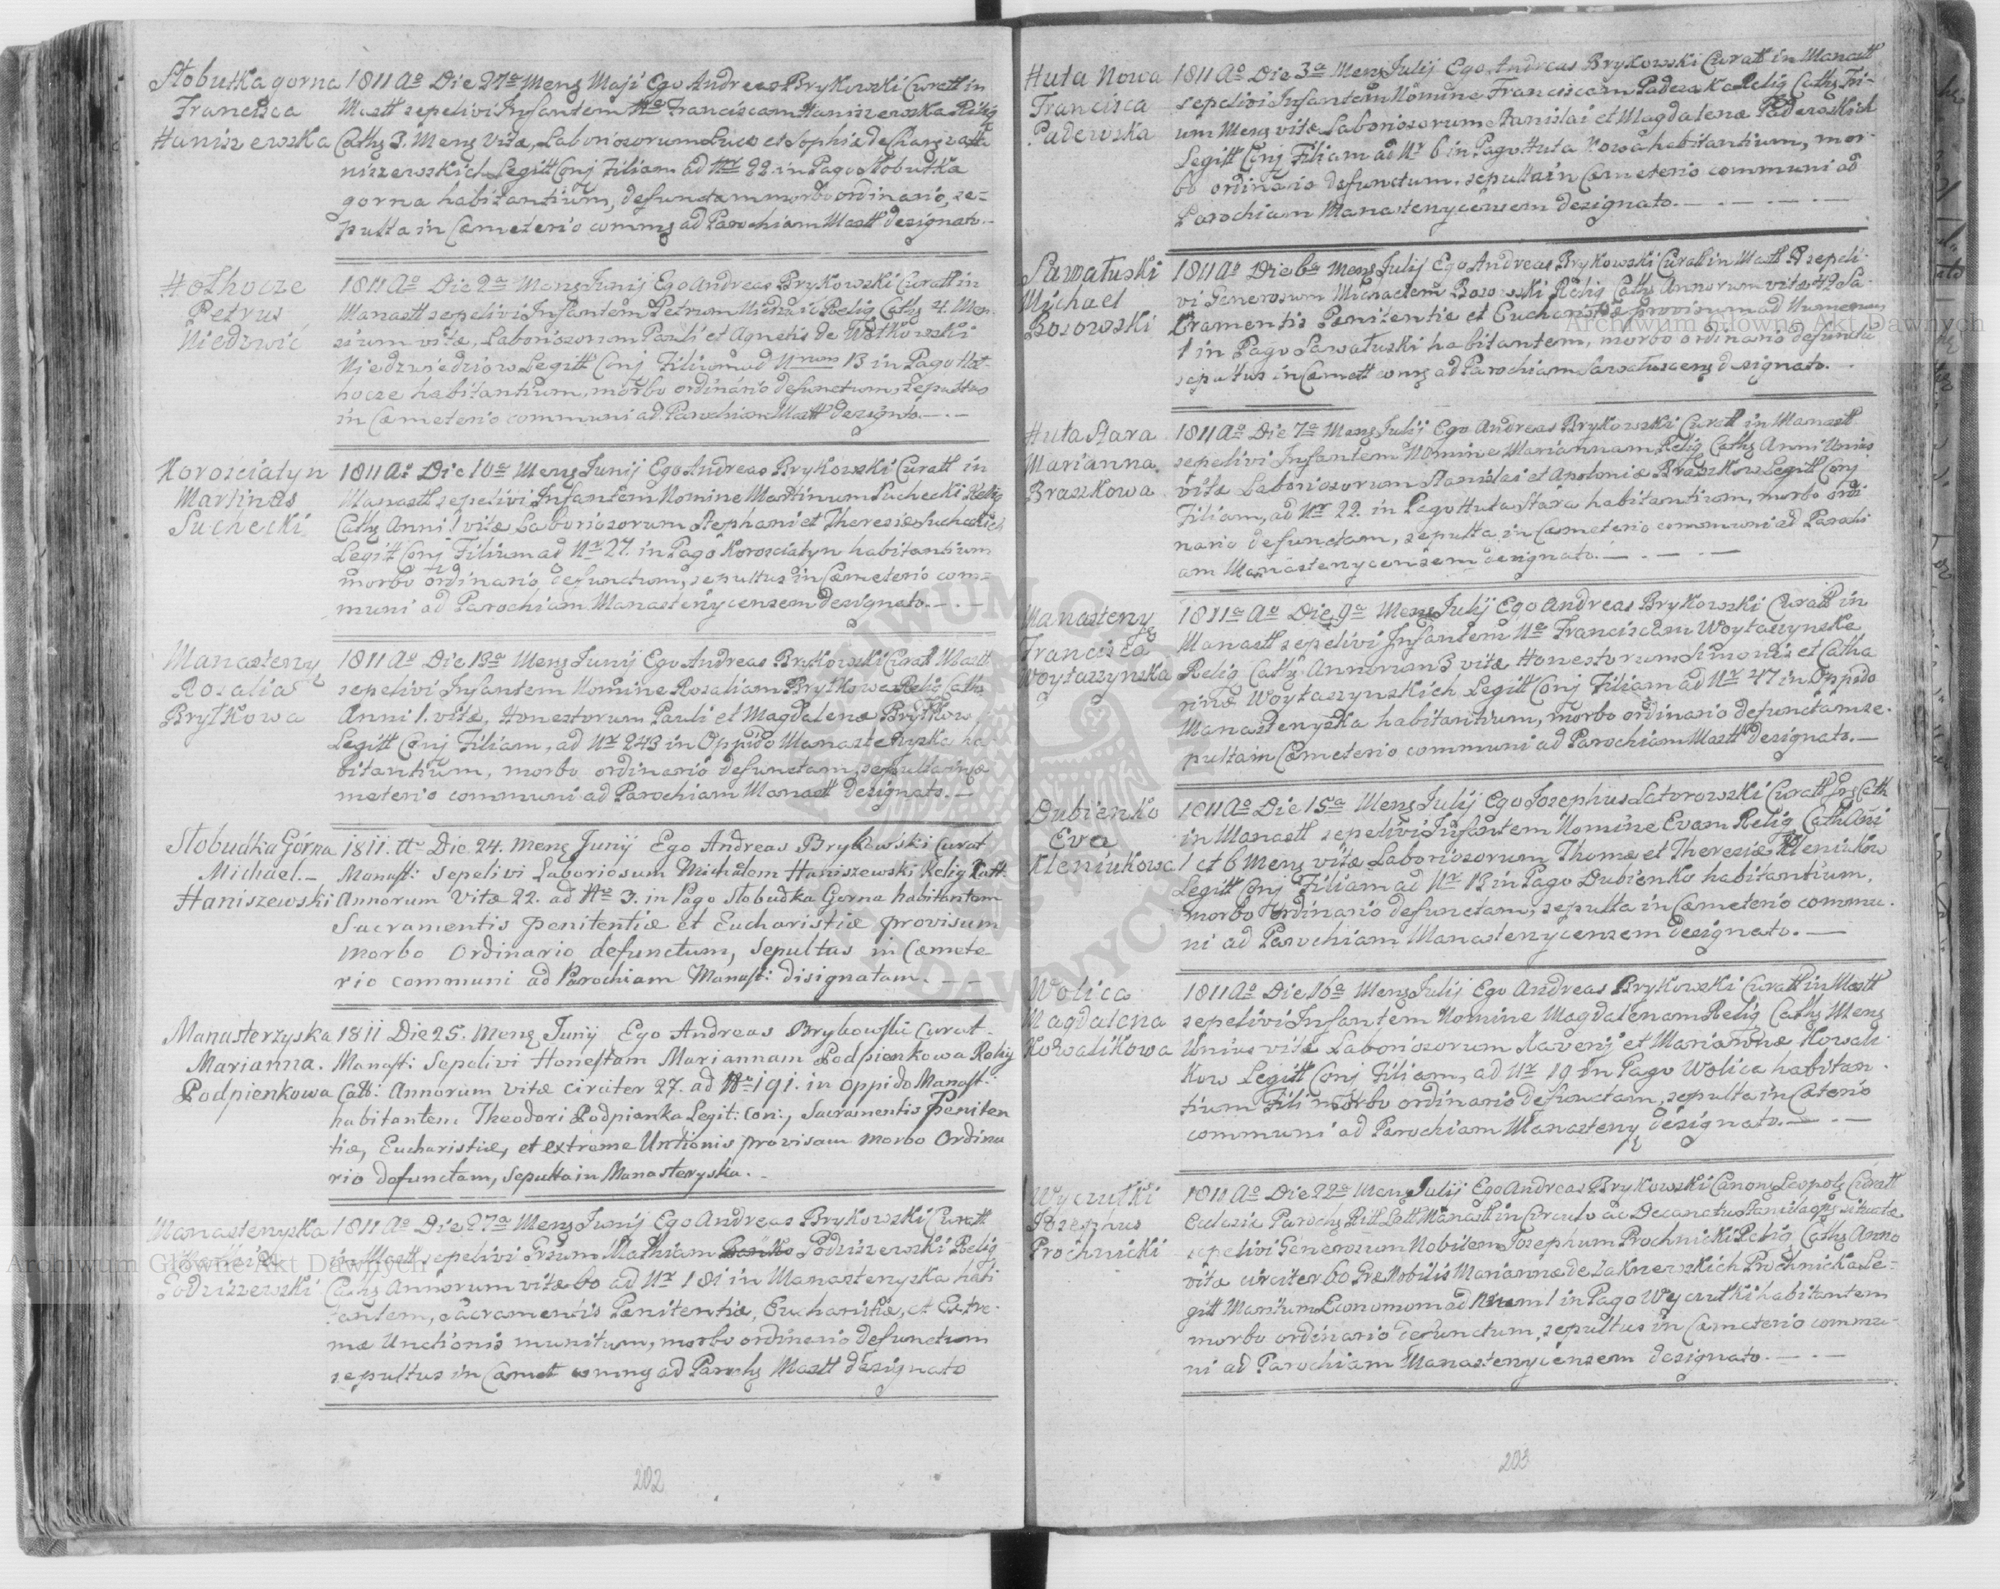 Słobutka gorna
Francisca
Haniszewska
1811 Ao Die 27a Mens Maji Ego Andreas Brykowski Curatt in
Mastt sepelivi Infantem Franciscam Haniszewska Relig
Cathy 3. Mens Vitæ, Laboriosorum Lucæ et Sophiæ de
niszewskich Legitt Conj Filiam ad Nr 22 in Pago Słobutka
gorna habitantium, defunctam morbo ordinario, se=
pulta in Cæmeterio comm ad Parochiam Mastt designato.-
Hołhocze
Petrus
Niedzwić
1811 Ao Die 2a Mens Junij Ego Andreas Brykowski Curatt in
Manastt sepelivi Infantem Petrum Relig Cathy 4. Men
sium vitæ, Laboriosorum Pauli et Agnetis de
Niedzwiedziow Legitt Conj Filium ad Num 13 in Pago Hoł-
hocze habitantium, morbo ordinario defunctum, sepultus
in Cæmeterio communi ad Parochiam Mastt designto.-.-
Korosciatyn
Martinus
Suchecki
1811 Ao Die 10a Mens Junij Ego Andreas Brykowski Curatt in
Manastt sepelivi Infantem Nomine Martinum Suchecki Relig
Cathy Anni 1 vitæ Laboriosorum Stephani et Theresiæ Sucheckich
Legitt Conj Filium ad Nr 27. in Pago Korosciatyn habitantium
morbo ordinario defunctum, sepultus in Cæmeterio com=
muni ad Parochiam Manastenycensem designato.-.-
Manasteny
Rosalia
Brytkowa
1811 Ao Die 13a Mens Junij Ego Andreas Brykowski Curat Mastt
sepelivi Infantem Nomine Rosaliam Brytkowa Relig Cath
Anni 1. vitæ, Honestorum Pauli et Magdalenæ Brytkow
Legitt Conj Filiam, ad Nr 243 in Oppido Manasteryska ha
bitantium, morbo ordinario defunctam, sepulta in Cæ
meterio communi ad Parochiam Manastt designato.-
Słobudka Górna
Michael.-
Haniszewski
1811. Die 24. Mens Junij Ego Andreas Brykowski Curat
Manast: sepelivi Laboriosum Michałem Haniszewski Relig Catt:
Annorum Vitæ 22. ad No 3. in Pago Słobudka Gorna habitantem
Sacramentis Penitentiæ et Eucharistiæ provisum
morbo Ordinario defunctum, Sepultus in Cæmete
rio communi ad Parochiam Manast: disignatam.--
Manasterzyska
Marianna.
Podpienkowa
1811 Die 25. Mens Junij Ego Andreas Brykowski Curat-
Manast: Sepelivi Honestam Mariannam Podpienkowa Relig
Catt: Annorum vitæ circiter 27. ad No 191. in oppido Manast:
habitantem Theodori Podpienka Legit: Con:, Sacramentis Peniten
tiæ, Eucharistiæ, et extreme Untionis provisam morbo Ordina
rio defunctam, Sepulta in Manasteryska.-
Manastenyska
Podziszewski
1811 Ao Die 27a Mens Junij Ego Andreas Brykowski Curatt
in Mastt sepelivi Mathiam Podziszewski Relig
Cathy Annorum vitæ 60 ad Nr 181 in Manastenyska habi
tantem, Sacramentis Pænitentiæ, Eucharistiæ, et Extre-
mæ Unctionis munitum, morbo ordinario defunctum
sepultus in Cæmet ad Mastt designato
202
Huta Nowa
Francisca
Paderwska
1811 Ao Die 3a Mens Julij Ego Andreas Brykowski Curatt in Manastt
sepelivi Infantem Nomine Franciscam Relig Cathy Tri-
um Mens vitæ Laboriosorum Stanislai et Magdalenæ Paderwskich
Legitt Conj Filiam ad Nr 6 in Pago Huta Nowa habitantium, mor-
bo ordinario defunctum, sepulta in Cæmeterio communi ad
Parochiam Manastenycensem designato.-.-.-
Sawałuski
Michael
Bosowski
1811 Ao Die 6a Mens Julij Ego Andreas Brykowski Curatt in Mastt sepeli-
vi Generosum Michaelem Bosowski Relig Cathy Annorum vitæ Sa-
cramentis Penitentiæ et Eucharistiæ provisum ad Numerum
1 in Pago Sawałuski habitantem, morbo ordinario defunctu
sepultus in Cæmett comg ad Parochiam designato.-
Huta Stara
Marianna
Braszkowa
1811 Ao Die 7a Mens Julij Ego Andreas Brykowski Curatt in Manastt
sepelivi Infantem Nomine Mariannam Relig Cathy Anni Unius
vitæ Laboriosorum Stanislai et Apoloniæ Braszkow Legitt Conj
Filiam, ad Nr 22. in Pago Huta Stara habitantium, morbo ordi
nario defunctam, sepulta in Cæmeterio communi ad Parochi
am Manastenycensem designato.-.-.-
Manasteny
Francisca
Woytaszynska
1811a Ao Die 9a Mens Julij Ego Andreas Brykowski Curatt in
Manastt sepelivi Infantem Na Franciscam Woytaszynska
Relig Cathy Annorum 3 vitæ Honestorum Simonis et Catha
rinæ Woytaszynskich Legitt Conj Filiam ad Nr 47 in Oppido
Manastenyska habitantium, morbo ordinario defunctam se-
pulta in Cæmeterio communi ad Parochiam Mastt designato.-
Dubienko
Eva
Kleniukowa
1811 Ao Die 15a Mens Julij Ego Josephus Curatt
in Manastt sepelivi Infantem Nomine Evam Relig Cath Ani
1 et 6 Mens vitæ Laboriosorum Thomæ et Theresiæ Kleniuków
Legitt Conj Filiam ad Nr 13 in Pago Dubienko habitantium,
morbo ordinario defunctam, sepulta in Cæmeterio commu-
ni ad Parochiam Manastenycensem designato.-
Wolica
Magdalena
Kowalikowa
1811 Ao Die 16a Mens Julij Ego Andreas Brykowski Curatt in Mastt
sepelivi Infantem Nomine Magdalenam Relig Cathy Mens
Unius vitæ Laboriosorum Xaverij et Mariannæ Kowali-
kow Legitt Conj Filiam, ad Nr 19 in Pago Wolica habitan-
tium morbo ordinario defunctam, sepulta in
communi ad Parochiam Manasteny designato.-.-
Wyczułki
Josephus
Prochnicki
1811 Ao Die 22a Mens Julij Ego Andreas Brykowski Canong Leopolg Curatt
Eclesiæ Parochg Ritt Latt Manastt in Circulo ac Decanatu
sepelivi Generosum Nobilem Josephum Prochnicki Relig Cathy Anno
vitæ circiter 60 Præ Nobilis Mariannæ de Prochnicka Le-
gitt Maritum Economom ad Num 1 in Pago Wyczutki habitantem
morbo ordinario defunctum, sepultus in Cæmeterio commu-
ni ad Parochiam Manastenycensem designato.-.-
203
Archiwum Główne Akt Dawnych
Archiwum Główne Akt Dawnych